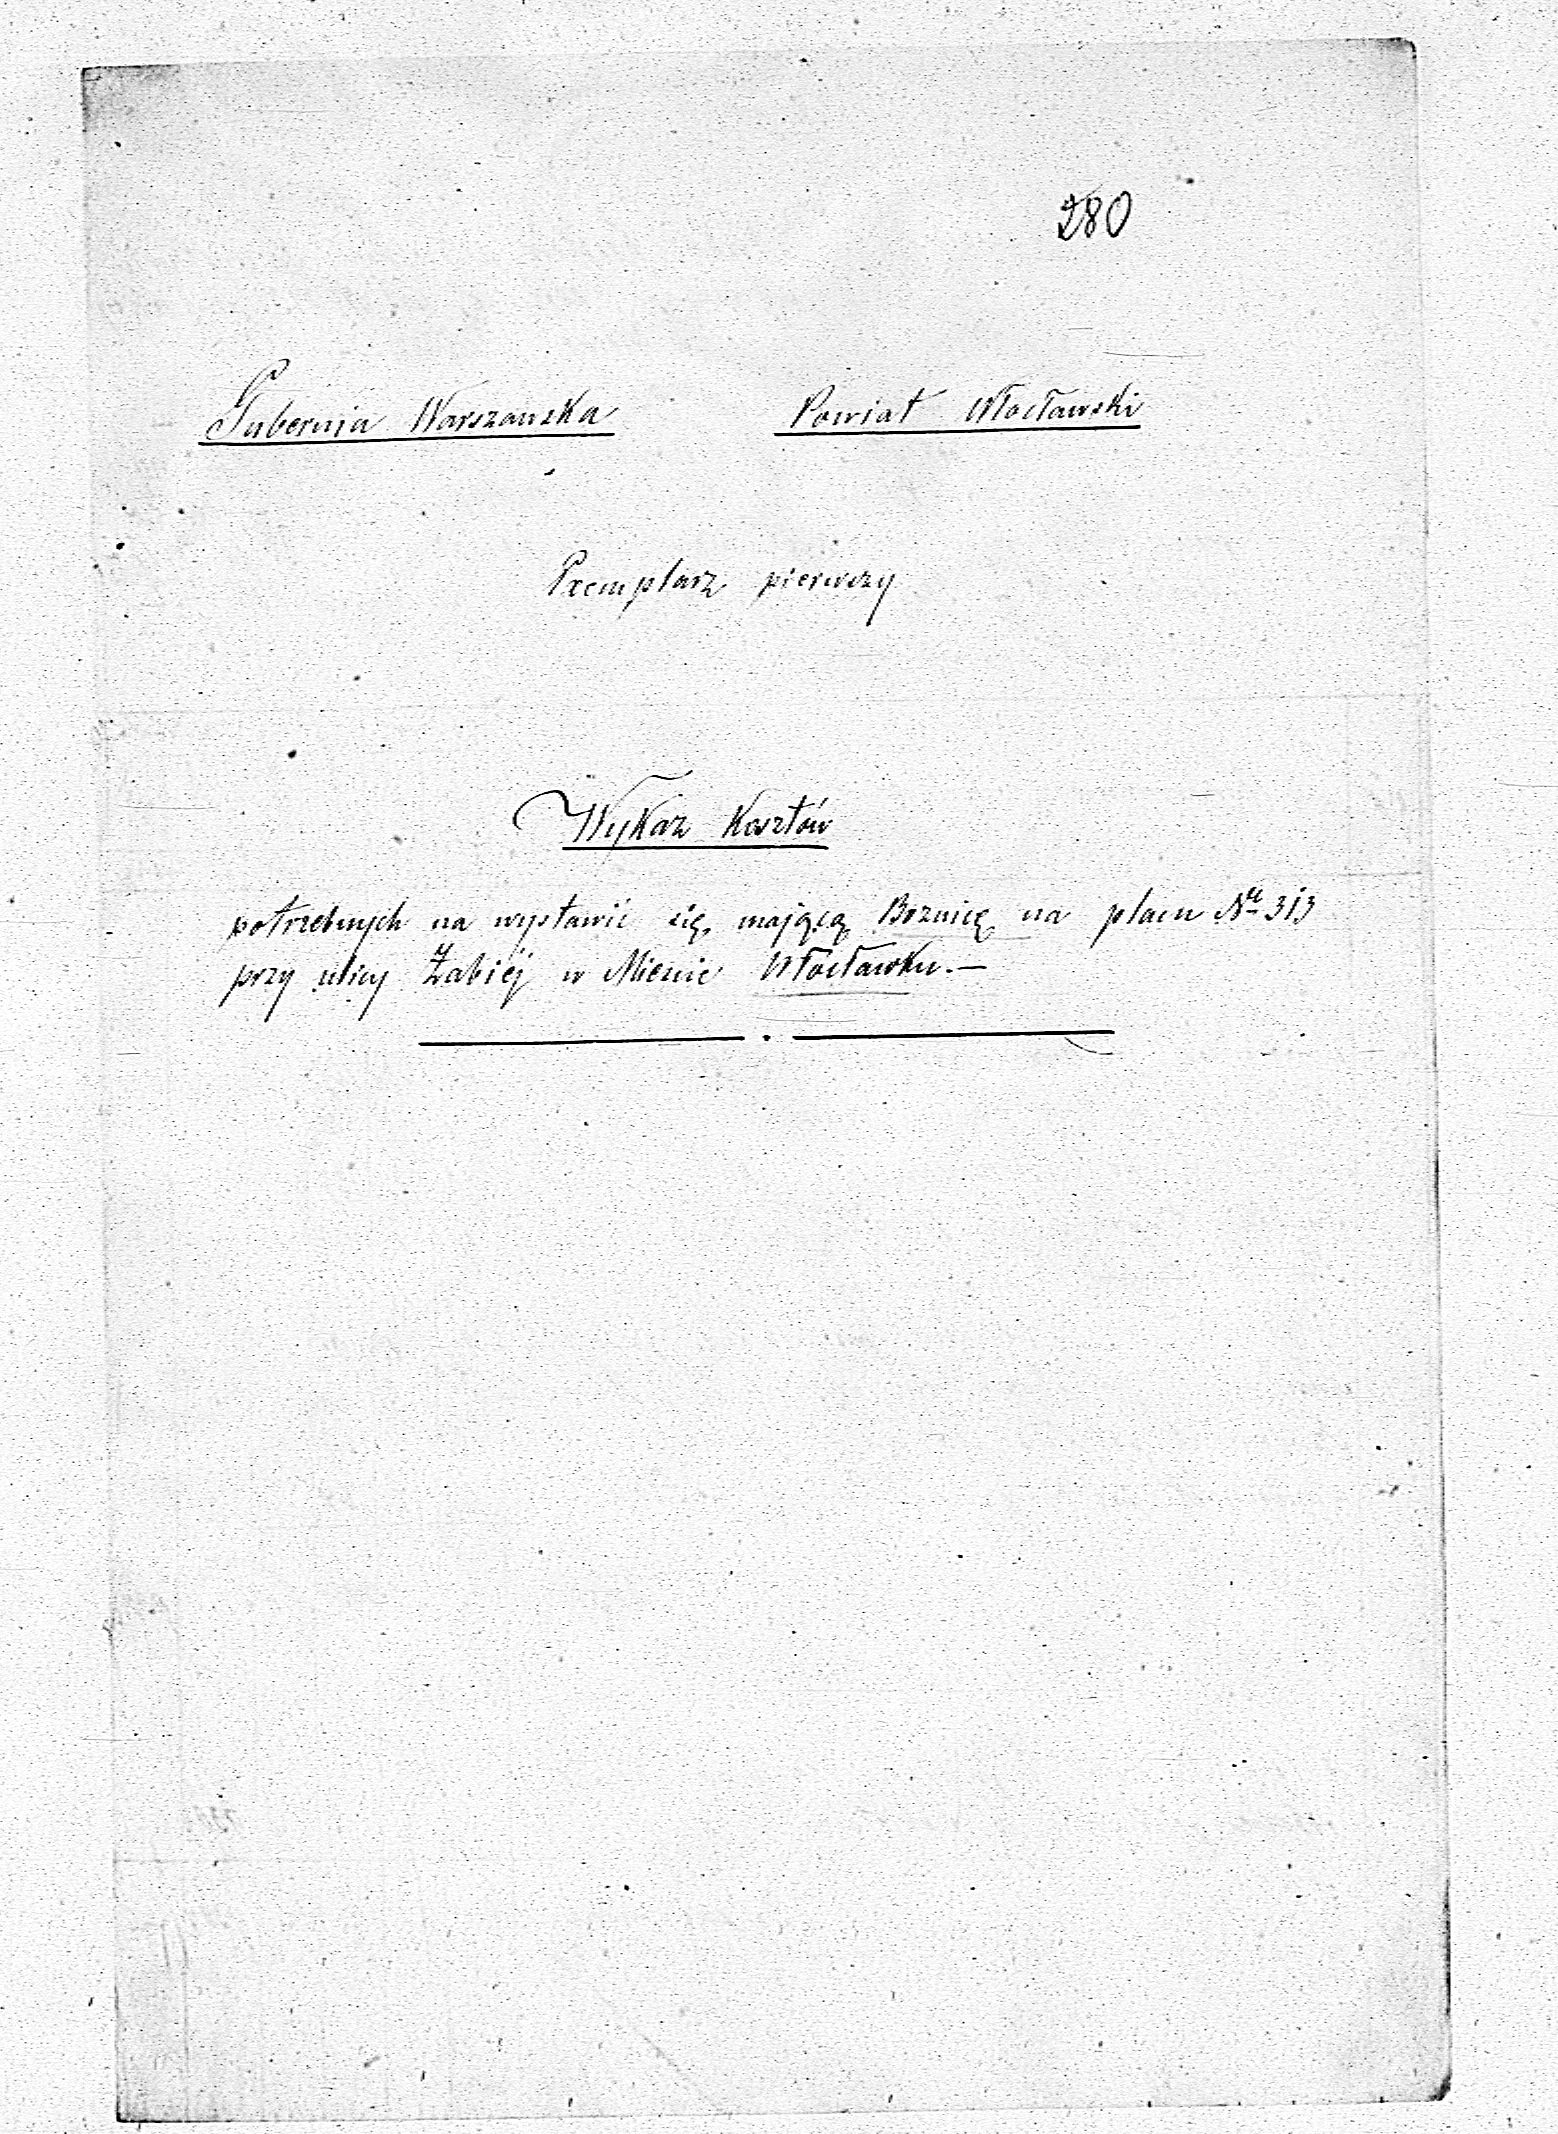 280
Gubernia Warszawska Powiat Włocławski
Exemplarz pierwszy
Wykaz Kosztów
potrzebnych na wystawić się mającą Boznicę na placu N<sup>re</sup> 313
przy ulicy Żabiéj w Mieście Włocławku.—